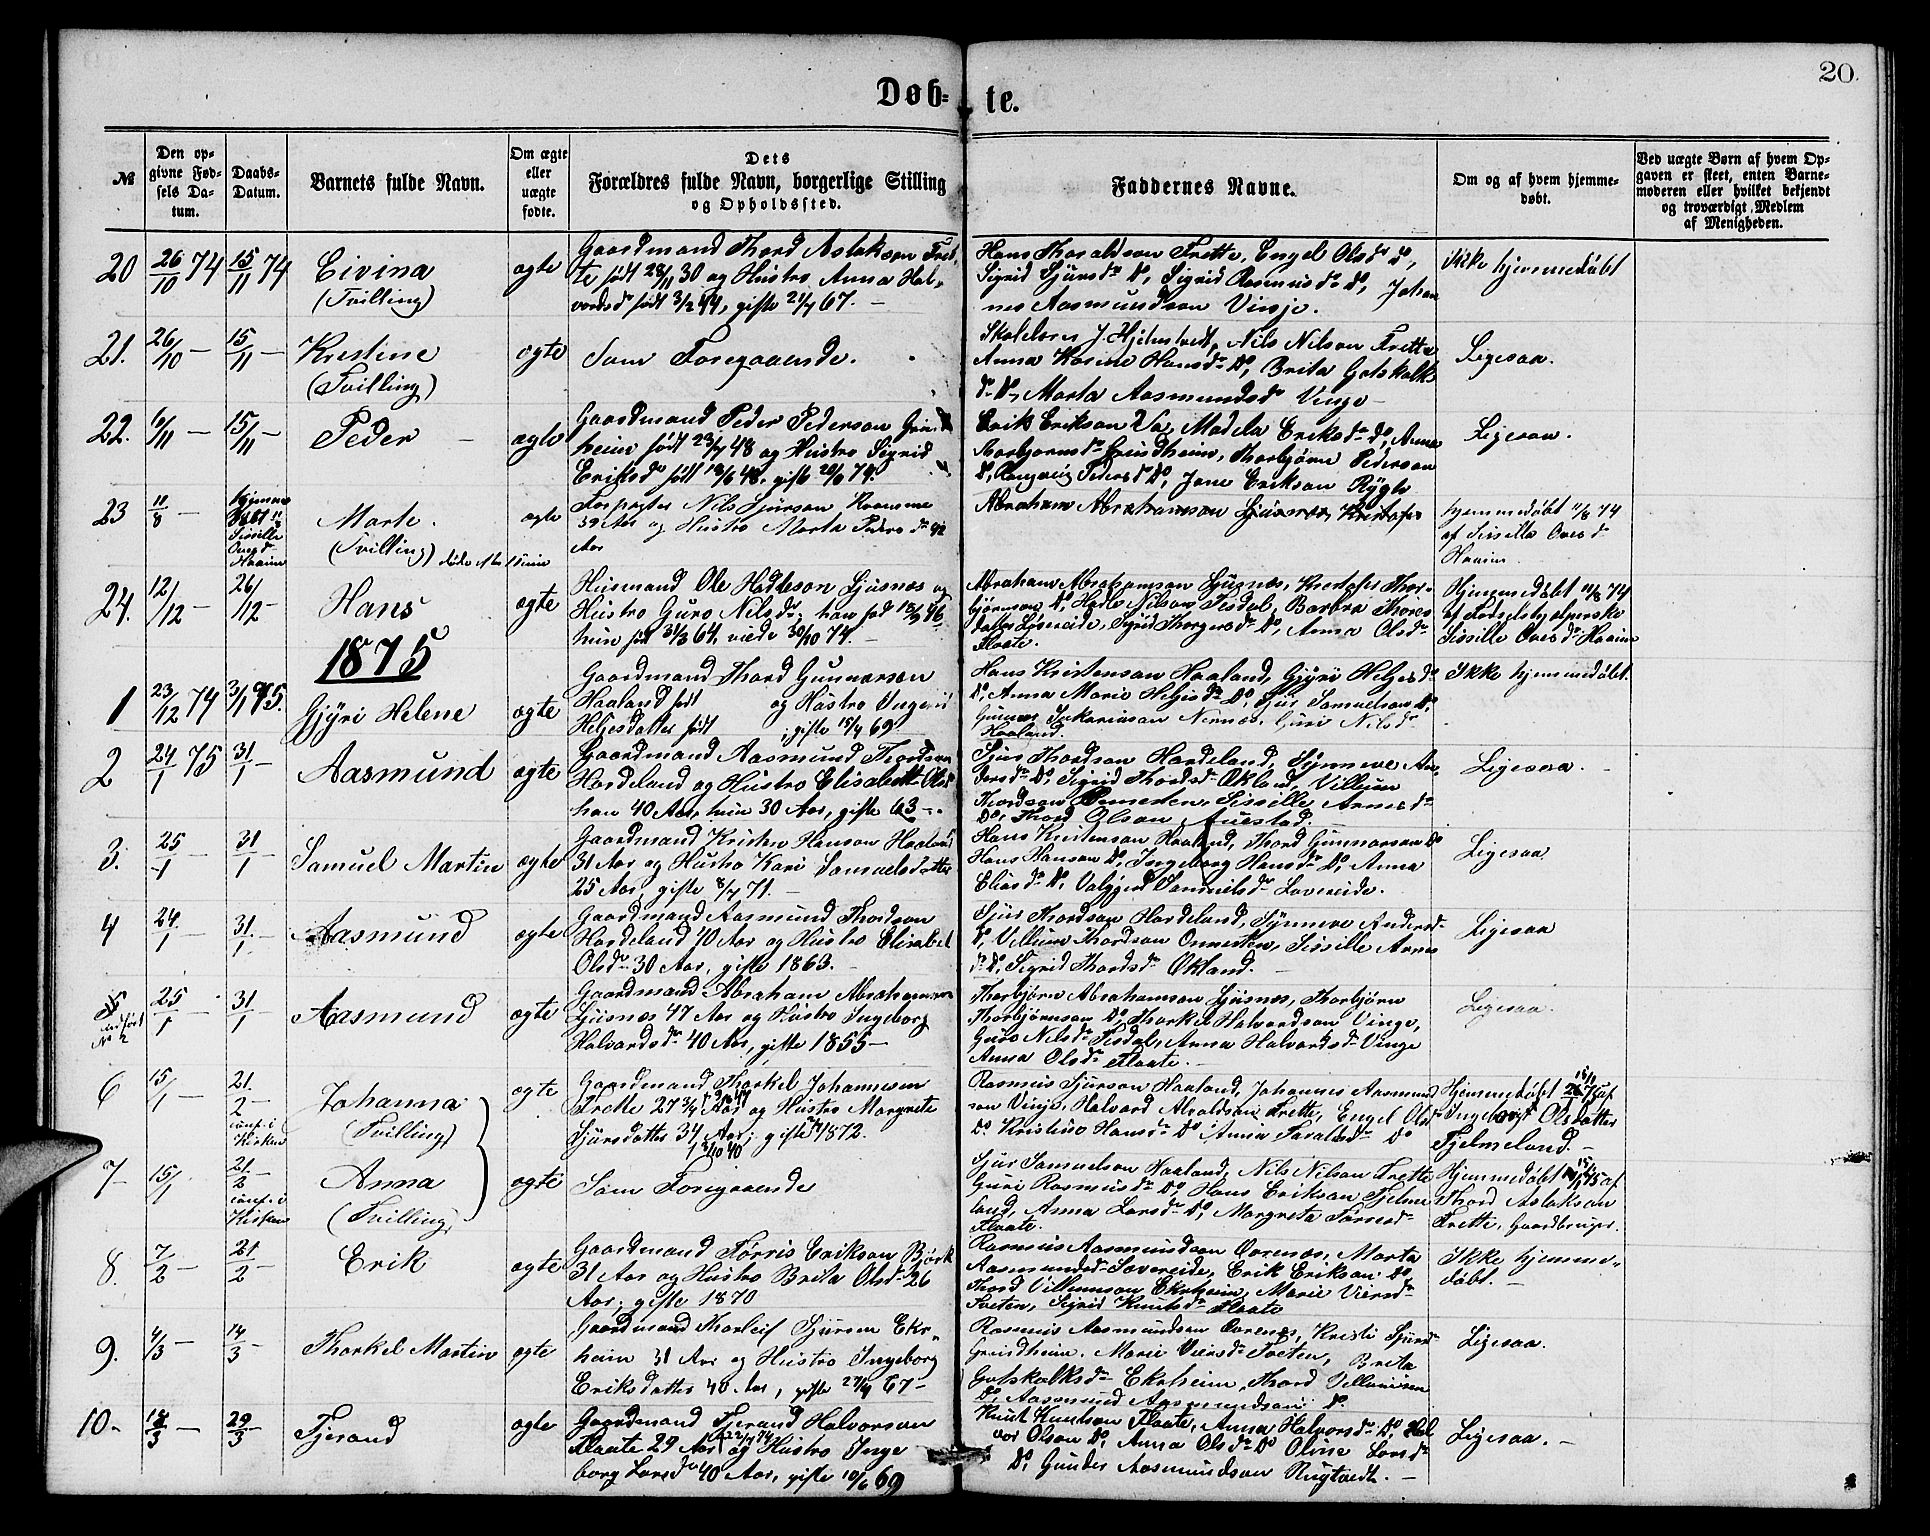 20.
Døb-te.
№
Den opgivne Fødsels Datum.
Daabs-Datum.
Barnets fulde Navn.
Om ægte eller uægte fødte.
Dets Forældres fulde Navn, borgerlige Stilling og Opholdssted.
Faddernes Navne.
Om og af hvem hjemmedøbt.
Ved uægte Børn af hvem Opgaven er skeet, enten Barnemoderen eller hvilket bekjendt og troværdigt Medlem af Menigheden.
20 26/10 74 15/11 74 Eivina
(Tvilling)
ægte
Gaardmand Thord Aslaksen Fret-
te født 28/11 30 og Hustro Anna Hal-
vorsd født 3/2 44, gifte 2/7 67. -
Hans Tharaldson Frette, Engel Olsdr Do,
Sigrid Sjursdr Do, Sigrid Rasmusdr Do, Johan
nes Aasmundson Vinje.
Ikke hjemmedøbt
21. 26/10 - 15/11 - Kristine
(Tvilling)
ægte
Som Foregaaende.
Skolelærer J. Hjelmtvedt, Nils Nilson Frette
Anna Hansdr Do, Brita Gotskalks
dr Do, Marta Aasmundsdr Vinge -
Ligesaa.
22. 10/11 - 15/11 - Peder -
ægte
Gaardmand Peder Pederson Grind
heim født 23/7 48 og Hustro Sigrid
Eriksdr født 18/6 48, gifte 20/6 74.
Erik Erikson Do, Madela Eriksdr Do, Anna
Torbjørnsdr Grindheim, Thorbjørn Pederson
Do, Rangveig Pedersdr Do, Jone Erikson Rygle
Ligesaa.
23 11/8 - Marte.
(Tvilling)
ægte
Forpagter Nils Sjurson
39 Aar og Hustro Marta Pedersdr 42
Aar
Abraham Abrahamson Ljusnæs, Kristofer
hjemmedøbt 11/8 74
af Sissilla Ovesd
Haaim
24. 12/12 - 26/12 - Hans
ægte
Husmand Ole Hodleson Ljusnæs og
Hustro Guro Nilsdr, han fød 18/9 46
hun født 31/3 64, viede 30/10 74. -
Abraham Abrahamson Ljusnæs, Kristofer Thor-
bjørnson Do, Hodle Nilson Tesdal, Barbra Thores
datter Løvereide, Sigrid Thorgersdr Do, Anna Olsdr
Flaate.
Hjemmedøbt 12/8 74
af Fødselshjælperske
Sissille Ovesdr Haaim
1875
1 23/12 74 31/1 75. Gjyri Helene
ægte
Gaardmand Thord Gunnarsen
Haaland født og Hustro Ingerid
Helgesdatter født , gifte 15/4 69
Hans Kristenson Haaland, Gjyri Helgesdr
Do, Anna Marie Helgesdr Do, Sjur Samuelson Do,
Gunnar Guri Nilsdr
Haaland.
Ikke hjemmedøbt.
2 24/1 75 31/1 - Aasmund
ægte
Gaardmand Aasmund Thordson
Hordeland og Hustro Elisabeth Olsdr
han 40 Aar, hun 30 Aar, gifte 63 -
Sjur Thordson Hordeland, Synneve An-
dersdr Do, Sigrid Thordsdr Økland, Villum
Thordson Sissille Arnesdr
Do, Thord Olson Austad.
Ligesaa. -
3. 25/1 - 31/1 Samuel Martin
ægte
Gaardmand Kristen Hanson Haaland
31 Aar og Hustro Kari Samuelsdatter
25 Aar, gifte 8/7 71. -
Hans Kristenson Haaland, Thord Gunnarson Do
Hans Hanson Do, Ingeborg Hansdr Do, Anna
Eliasdr Do, Valgjerd Samuelsdr Løvereide.
Ligesaa
4 24/1 - 31/1 - Aasmund
ægte
Gaardmand Aasmund Thordson
Hordeland 40 Aar og Hustro Elisabet
Olsdr 30 Aar, gifte 1863. -
Sjur Thordson Hordeland, Synneve Andersdr
Do, Villum Thordson Sissille Arnes
dr Do, Sigrid Thordsdr Økland. -
Ligesaa
5 indført
№ 2
25/1 - 31/1 Aasmund
ægte
Gaardmand Abraham Abrahamson
Ljusnæs 47 Aar og Hustro Ingeborg
Halvardsdr 40 Aar, gifte 1855 -
Thorbjørn Abrahamson Ljusnæs, Thorbjørn
Thorbjørnson Do, Thorkel Halvardson Vinge,
Guro Nilsdr Tesdal, Anna Halvardsdr Vinge
Anna Olsdr Flaate. -
Ligesaa.
6 15/1 - 21/2 - conf. i
Kirken
Johanna
(Tvilling)
ægte
Gaardmand Thorkel Johannesen
Frette 27 3/4 Aar og Hustro Margrete
Sjursdatter 34 Aar, gifte 1872.
Rasmus Sjurson Haaland, Johannes Aasmund
son Vinje, Halvard Frette, Engel Olsdr
Do Kristine Hansdr Do Anna Taraldsdr Do
Hjemmedøbt 15/1 75 af
Ingeborg Olsdatter
Fjelmeland. -
7 - 15/1 21/2 conf. i
Kirken
Anna
(Tvilling)
ægte
Som Foregaaende
Sjur Samuelson Haaland, Nils Nilson Frette
Guri Rasmusdr Do, Hans Erikson Fjelme
land, Anna Larsdr Do, Margreta Tørresdr
Flaate.
Hjemmedøbt 15/1 75 af
Thord Aslakson
Frette, Gaardbruger.
8. 7/2 - 21/2 - Erik
ægte
Gaardmand Tørris Erikson Bjørk
31 Aar og Hustro Brita Olsdr 26
Aar, gifte 1870
Rasmus Aasmundson Ovrenæs, Marta
Aasmundsdr Løvereide, Erik Erikson Do,
Thord Villumson Ekrheim, Marie Viersdr
Tveten, Sigrid Knutsdr Flaate
Ikke hjemme-
døbt. -
9. 4/3 - 14/3 - Thorkel Martin
ægte
Gaardmand Thorleif Sjursen Ekr-
heim 31 Aar og Hustro Ingeborg
Eriksdatter 40 Aar, gifte 27/4 67 -
Rasmus Aasmundson Ovrenæs, Kristi Sjursdr
Grindheim, Marie Viersdr Tveten, Brita
Gotskalksdr Ekrheim, Thord Villumson
Do, Aasmund Aasmundson Do
Ligesaa.
10. - 18/3 - 29/3 - Tjerand
ægte
Gaardmand Tjerand Halvorson
Flaate 29 Aar og Hustro Inge
borg Larsdr 40 Aar, gifte 10/6 69
Knut Knutson Flaate, Anna Halvorsdr Do, Hal
vor Olson Do, Anna Olsdr Do Oline Larsdr
Do, Gunder Aasmundson Rugtvedt. -
Ligesaa. -